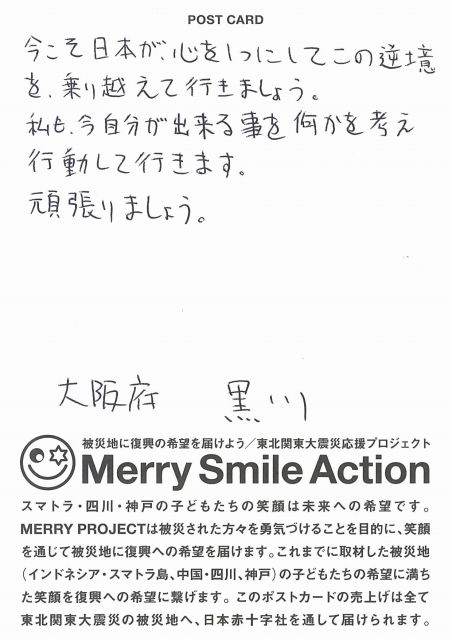 POST CARD
今こそ日本が、心を1つにしてこの逆境
を、乗り越えて行きましょう。
私も、今自分が出来る事を何かを考え
行動して行きます。
頑張りましょう。
大阪府 黒川
被災地に復興の希望を届けよう／東北関東大震災応援プロジェクト
Merry Smile Action
スマトラ・四川・神戸の子どもたちの笑顔は未来への希望です。
MERRY PROJECTは被災された方々を勇気づけることを目的に、笑顔
を通じて被災地に復興への希望を届けます。これまでに取材した被災地
（インドネシア・スマトラ島、中国・四川、神戸）の子どもたちの希望に満ち
た笑顔を復興への希望に繋げます。このポストカードの売上げは全て
東北関東大震災の被災地へ、日本赤十字社を通して届けられます。